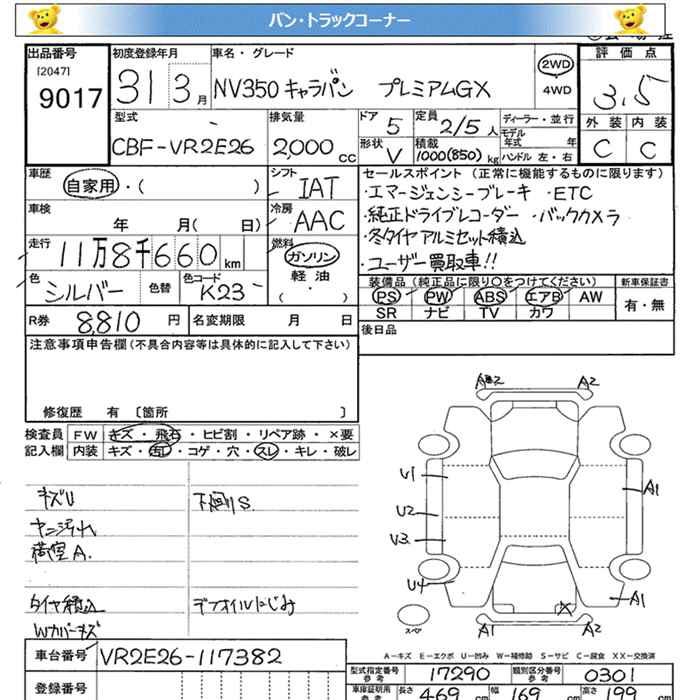 バン・トラックコーナー
出品番号 初度登録年月 車名・グレード 評価点
[2047]
9017 31 3月 NV350 キャラバン プレミアムGX 2WD 4WD 3.5
外装 内装
C C
型式 排気量 ドア 定員 ディーラー・並行
CBF-VR2E26 2,000cc 5 2/5人
モデル年式 年
形状 積載 ハンドル 左・右
V 1000(850)kg
車歴 シフト セールスポイント (正常に機能するものに限ります)
自家用・( ) IAT ・エマージェンシーブレーキ ・ETC
車検 冷房 ・純正ドライブレコーダー ・バックカメラ
年 月( 日) AAC ・冬タイヤアルミセット積込
走行 燃料 ・ユーザー買取車!!
11万8千660km ガソリン
軽油
・( )
色 色替 色コード
シルバー K23
装備品 (純正品に限り○をつけてください) 新車保証書
PS PW ABS エアB AW 有・無
SR ナビ TV カワ
R券 8,810円 名変期限 月 日 後日品
注意事項申告欄(不具合内容等は具体的に記入して下さい)
修復歴 有 〔箇所 〕
検査員 FW キズ・飛石・ヒビ割・リペア跡・×要
記入欄 内装 キズ・汚レ・コゲ・穴・スレ・キレ・破レ
キズU 下廻りS.
ヤニ汚れ
荷室A.
タイヤ積込 デフオイルにじみ
Wカバーキズ
A2 A2
U1 A1
U2
U3
U4 A1
X
スペア A1 A2
A-キズ E-エクボ U-凹み W-補修跡 S-サビ C-腐食 XX-交換済
車台番号 VR2E26-117382
登録番号
型式指定番号 参考 17290 類別区分番号 参考 0301
車庫証明用 参考 長さ 469cm 幅 169cm 高さ 199cm